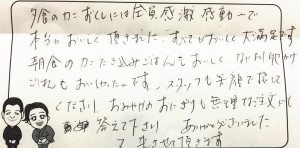 夕食のカニおくしには全員感激 感動ーで
本当においしく頂きました。すべてがおいしく大満足です
朝食のたき込みごはんもおいしく
ごはんもおいしかったです。スタッフも笑顔で接して
ください、おみやげのおにぎりも無理な注文にも
答えて下さり ありがとうございました
又来させて頂きます